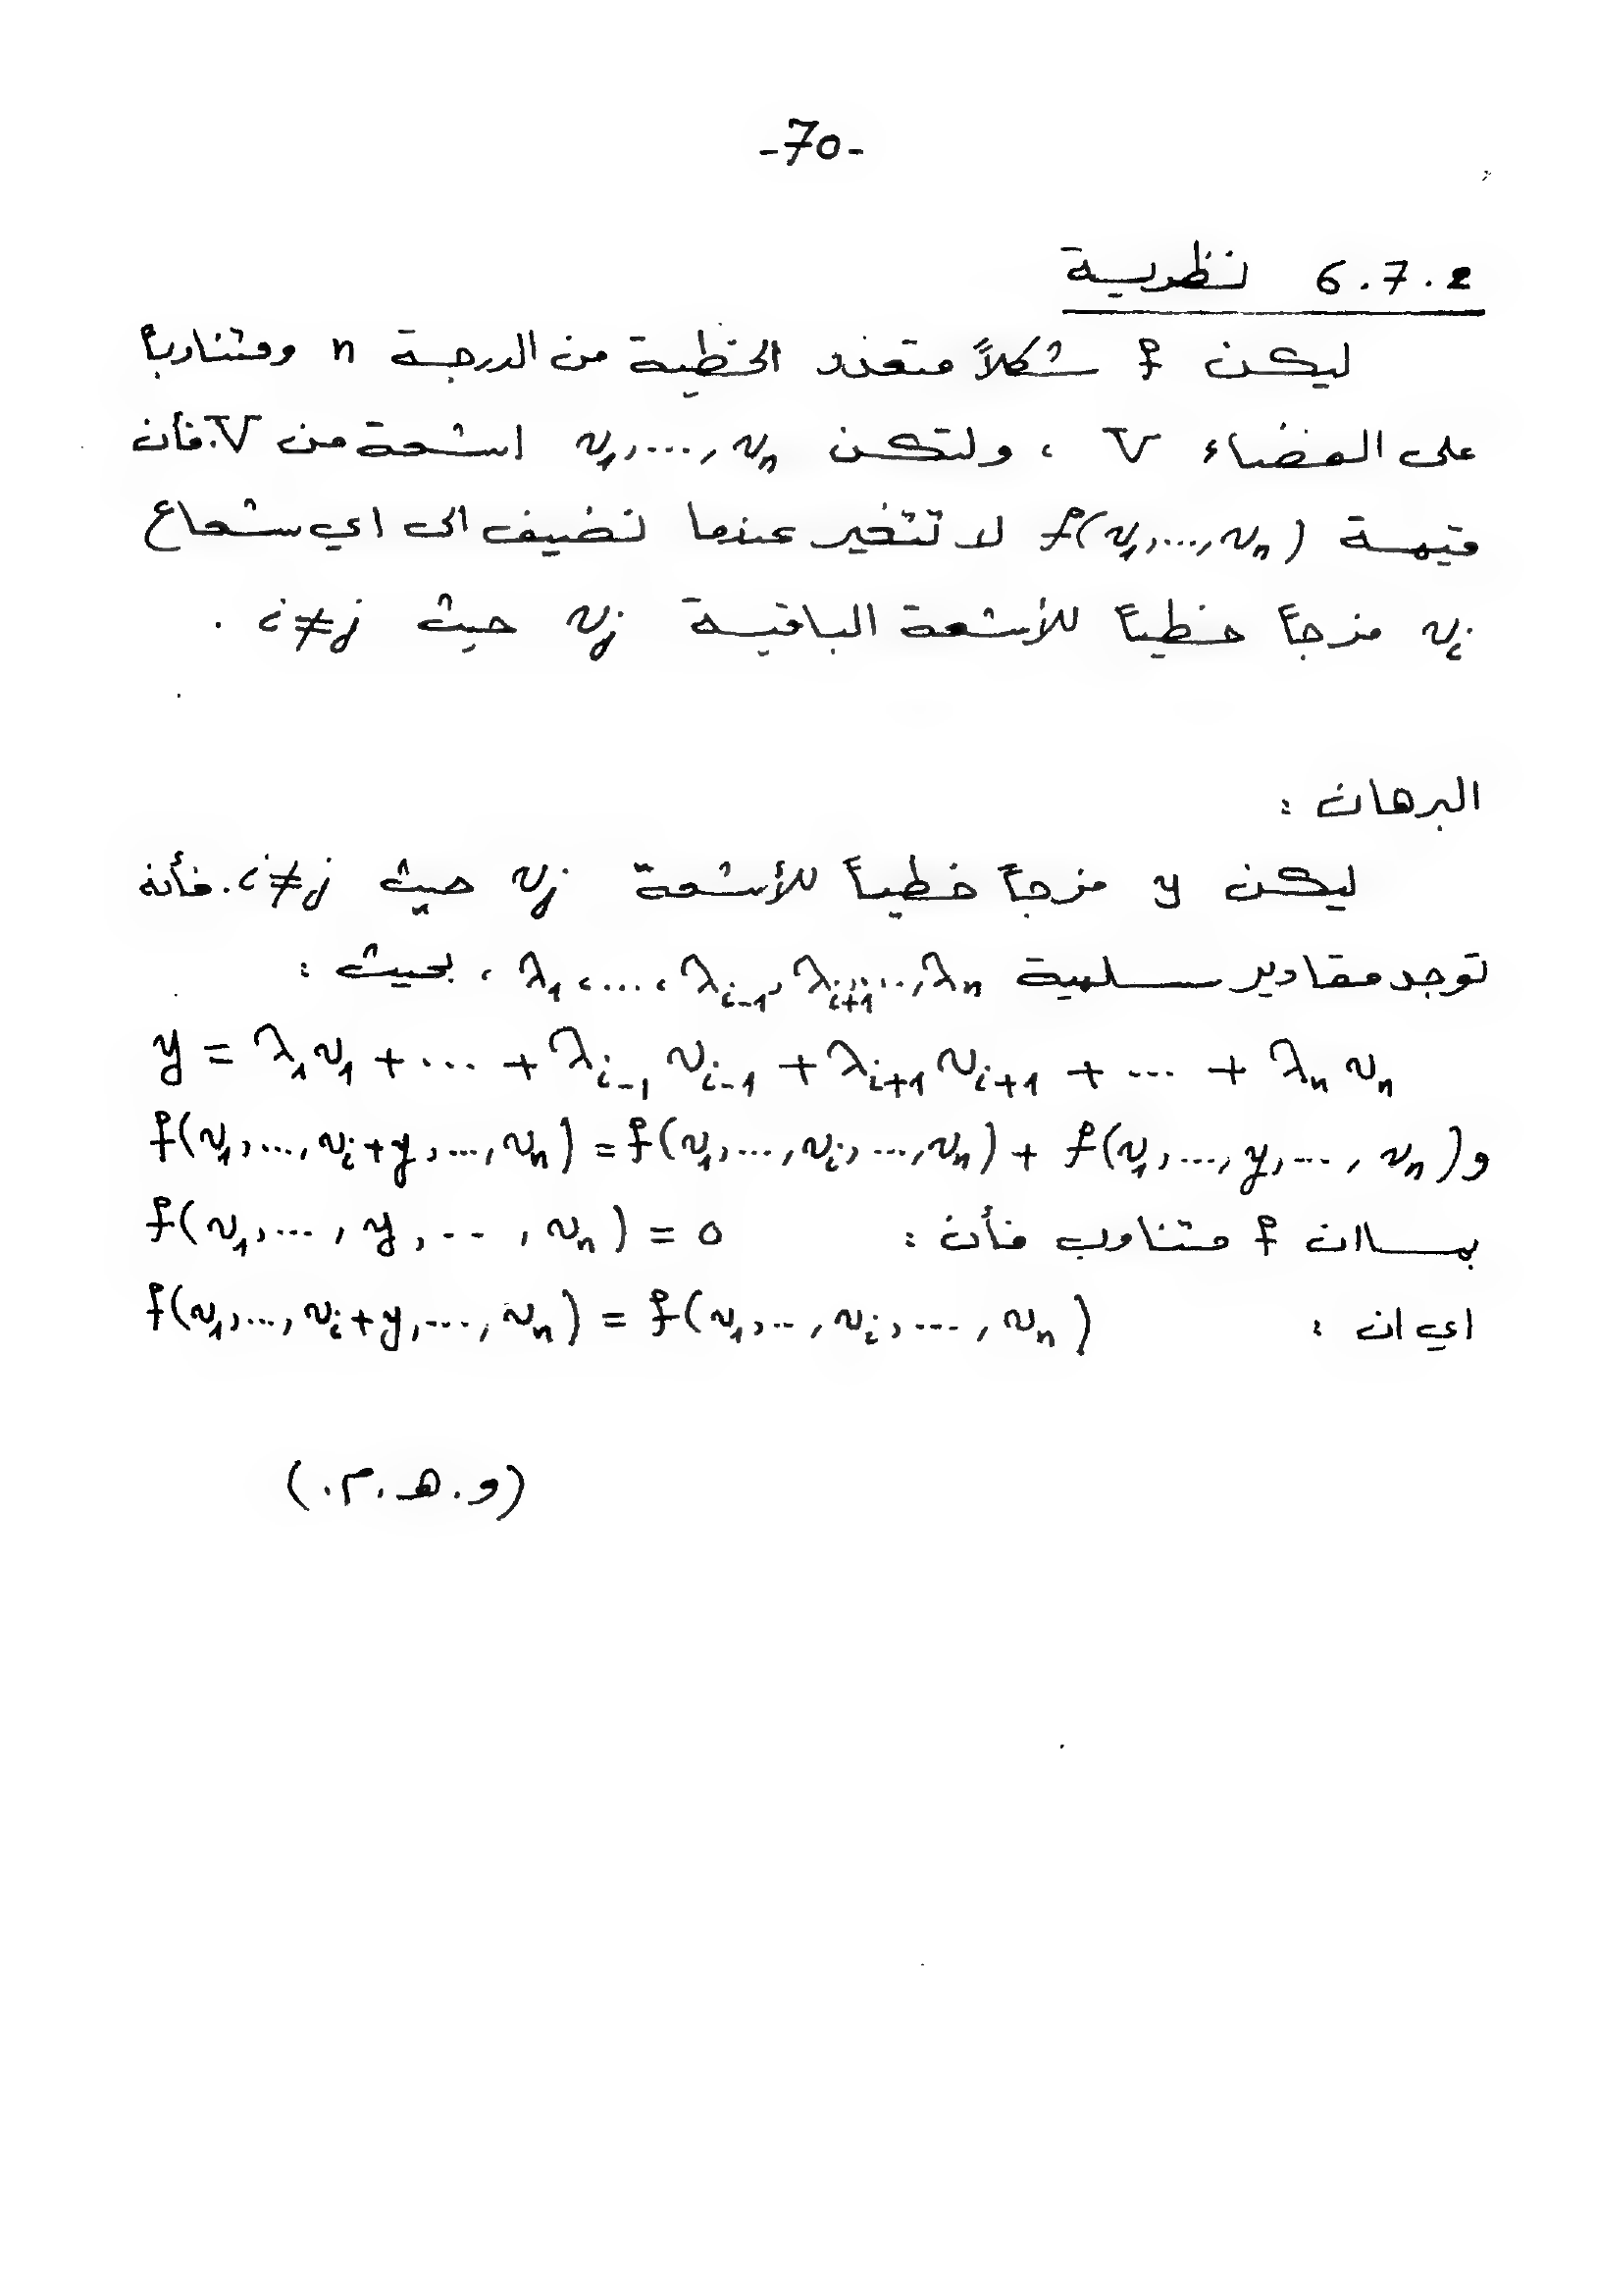 -70-
6.7.2 نظرية
ليكن f شكلاً متعدد الخطية من الدرجة n ومتناوباً
على الفضاء V ، ولتكن v₁,...,vₙ اشعة من V. فأن
قيمة f(v₁,...,vₙ) لا تتغير عندما نضيف الى اي شعاع
vᵢ مزجاً خطياً للأشعة الباقية vⱼ حيث i≠j .
البرهان :
ليكن y مزجاً خطياً للأشعة vⱼ حيث i≠j. فأنه
توجد مقادير سلمية λ₁,...,λᵢ₋₁,λᵢ₊₁,...,λₙ ، بحيث :
y = λ₁v₁ + ... + λᵢ₋₁vᵢ₋₁ + λᵢ₊₁vᵢ₊₁ + ... + λₙvₙ
و f(v₁,...,vᵢ+y,...,vₙ) = f(v₁,...,vᵢ,...,vₙ) + f(v₁,...,y,...,vₙ)
بما ان f متناوب فأن : f(v₁,...,y,...,vₙ) = 0
اي ان : f(v₁,...,vᵢ+y,...,vₙ) = f(v₁,...,vᵢ,...,vₙ)
(و.هـ.م.)